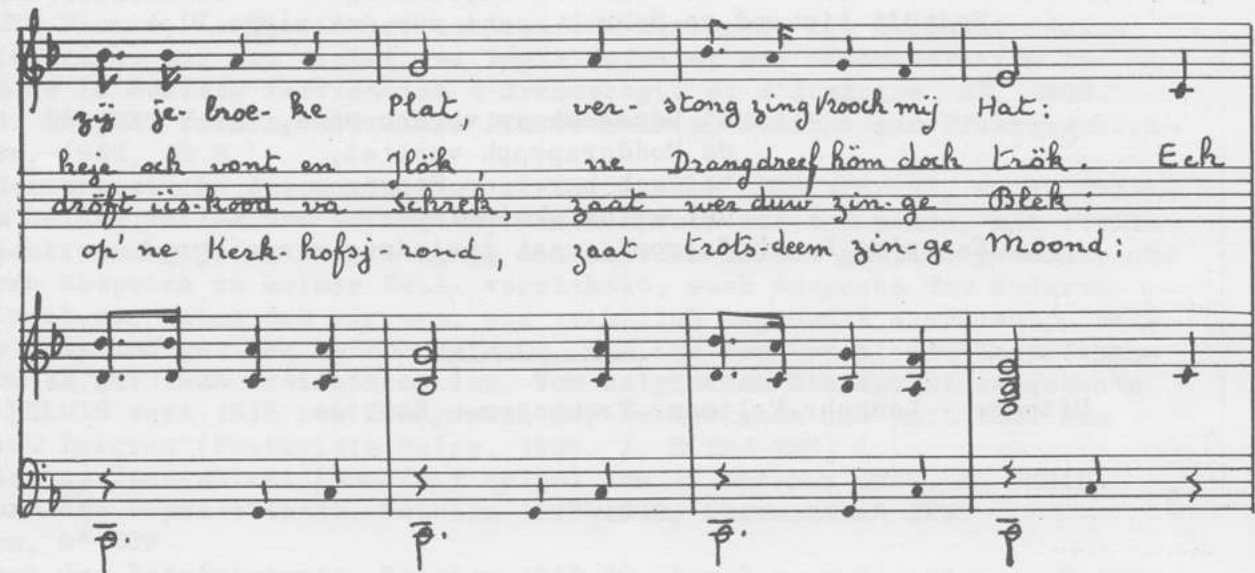 zij je-broe-ke Plat, ver-stong zing Vroock mij Hat:
heje och vont en Jlök, ne Drang dreef höm doch trök Eck
dröft üs-kood va Schrek, zaat wer duw zin-ge Blek:
op' ne Kerk-hofsjrond, zaat trots-deem zin-ge Moond: